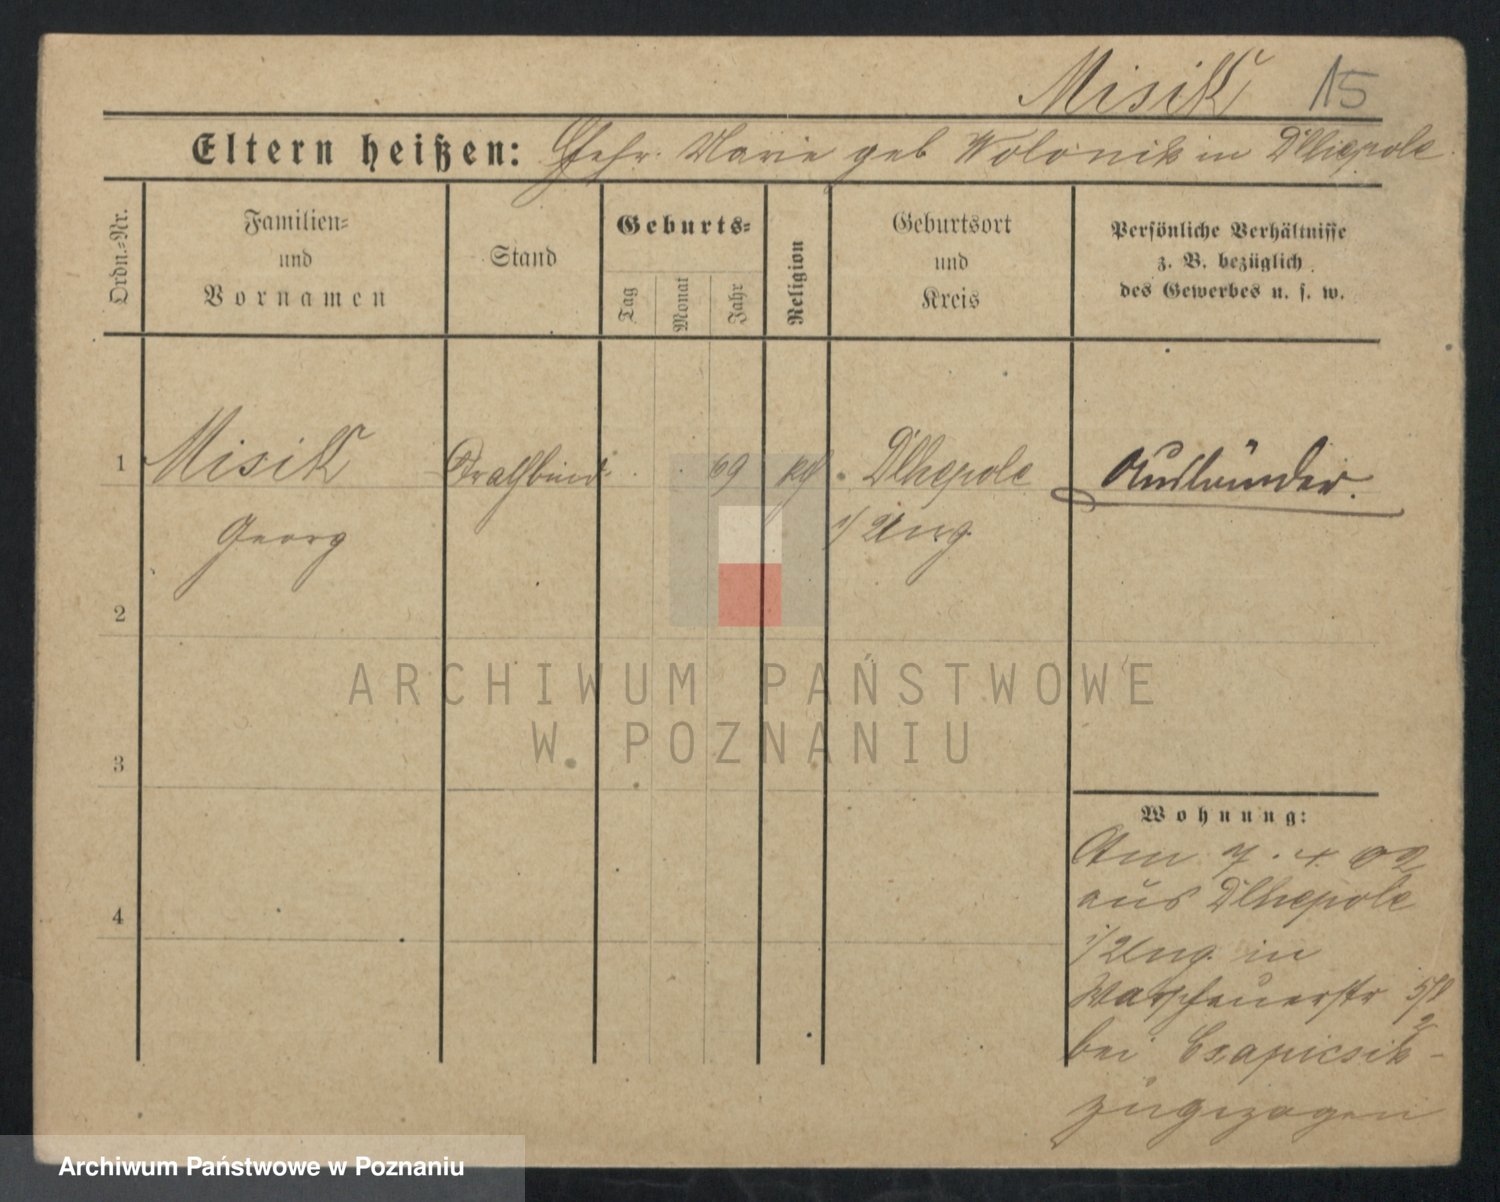 Misik 15
Eltern heißen: Marie geb Wolonik in Dlhepole
Ordn.-Nr.
Familien-
und
Vornamen
Stand
Geburts-
Tag
Monat
Jahr
Religion
Geburtsort
und
Kreis
Persönliche Verhältnisse
z. B. bezüglich
des Gewerbes u. s. w.
1 Misik Drathbind. 69 kth. Dlhepole Ausländer.
Georg i/Ung.
2
3
4
Wohnung:
Am 7. 4 02
aus Dlhepole
i/Ung. in
Warschauerstr 5/8
2
bei Csapicsik
zugezogen
ARCHIWUM PAŃSTWOWE
W POZNANIU
Archiwum Państwowe w Poznaniu